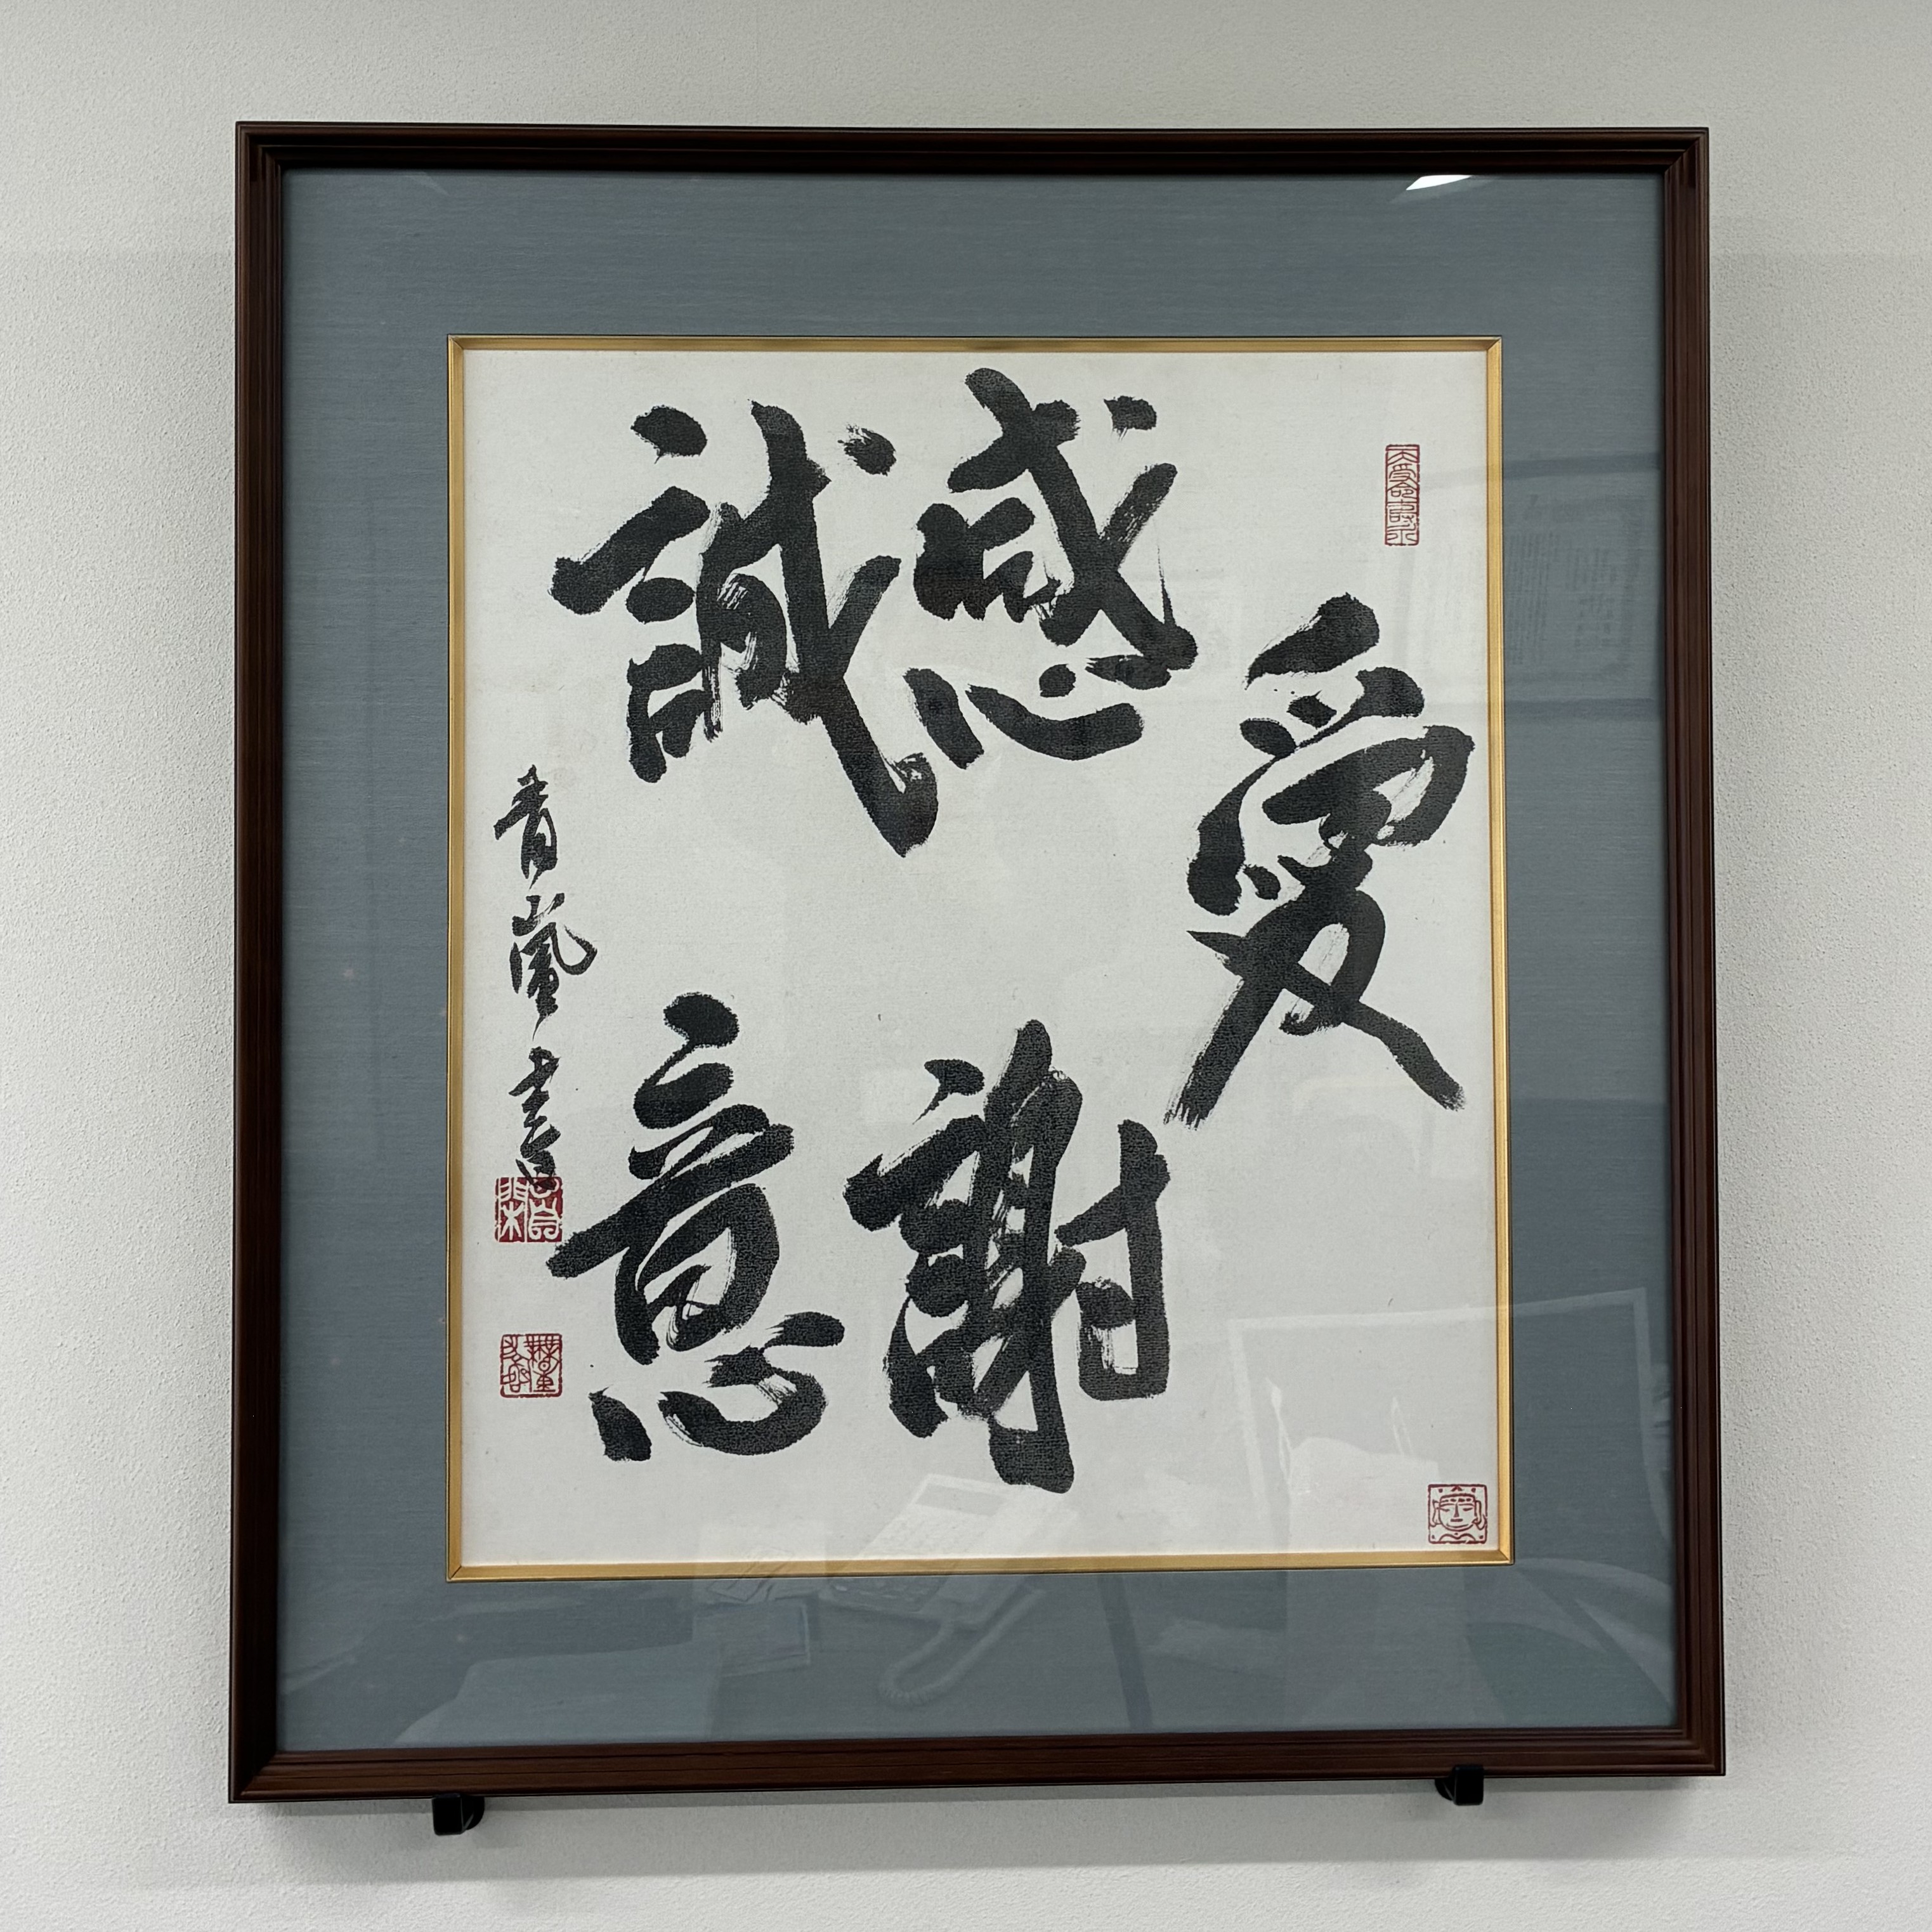 愛
感謝
誠意
青嵐書